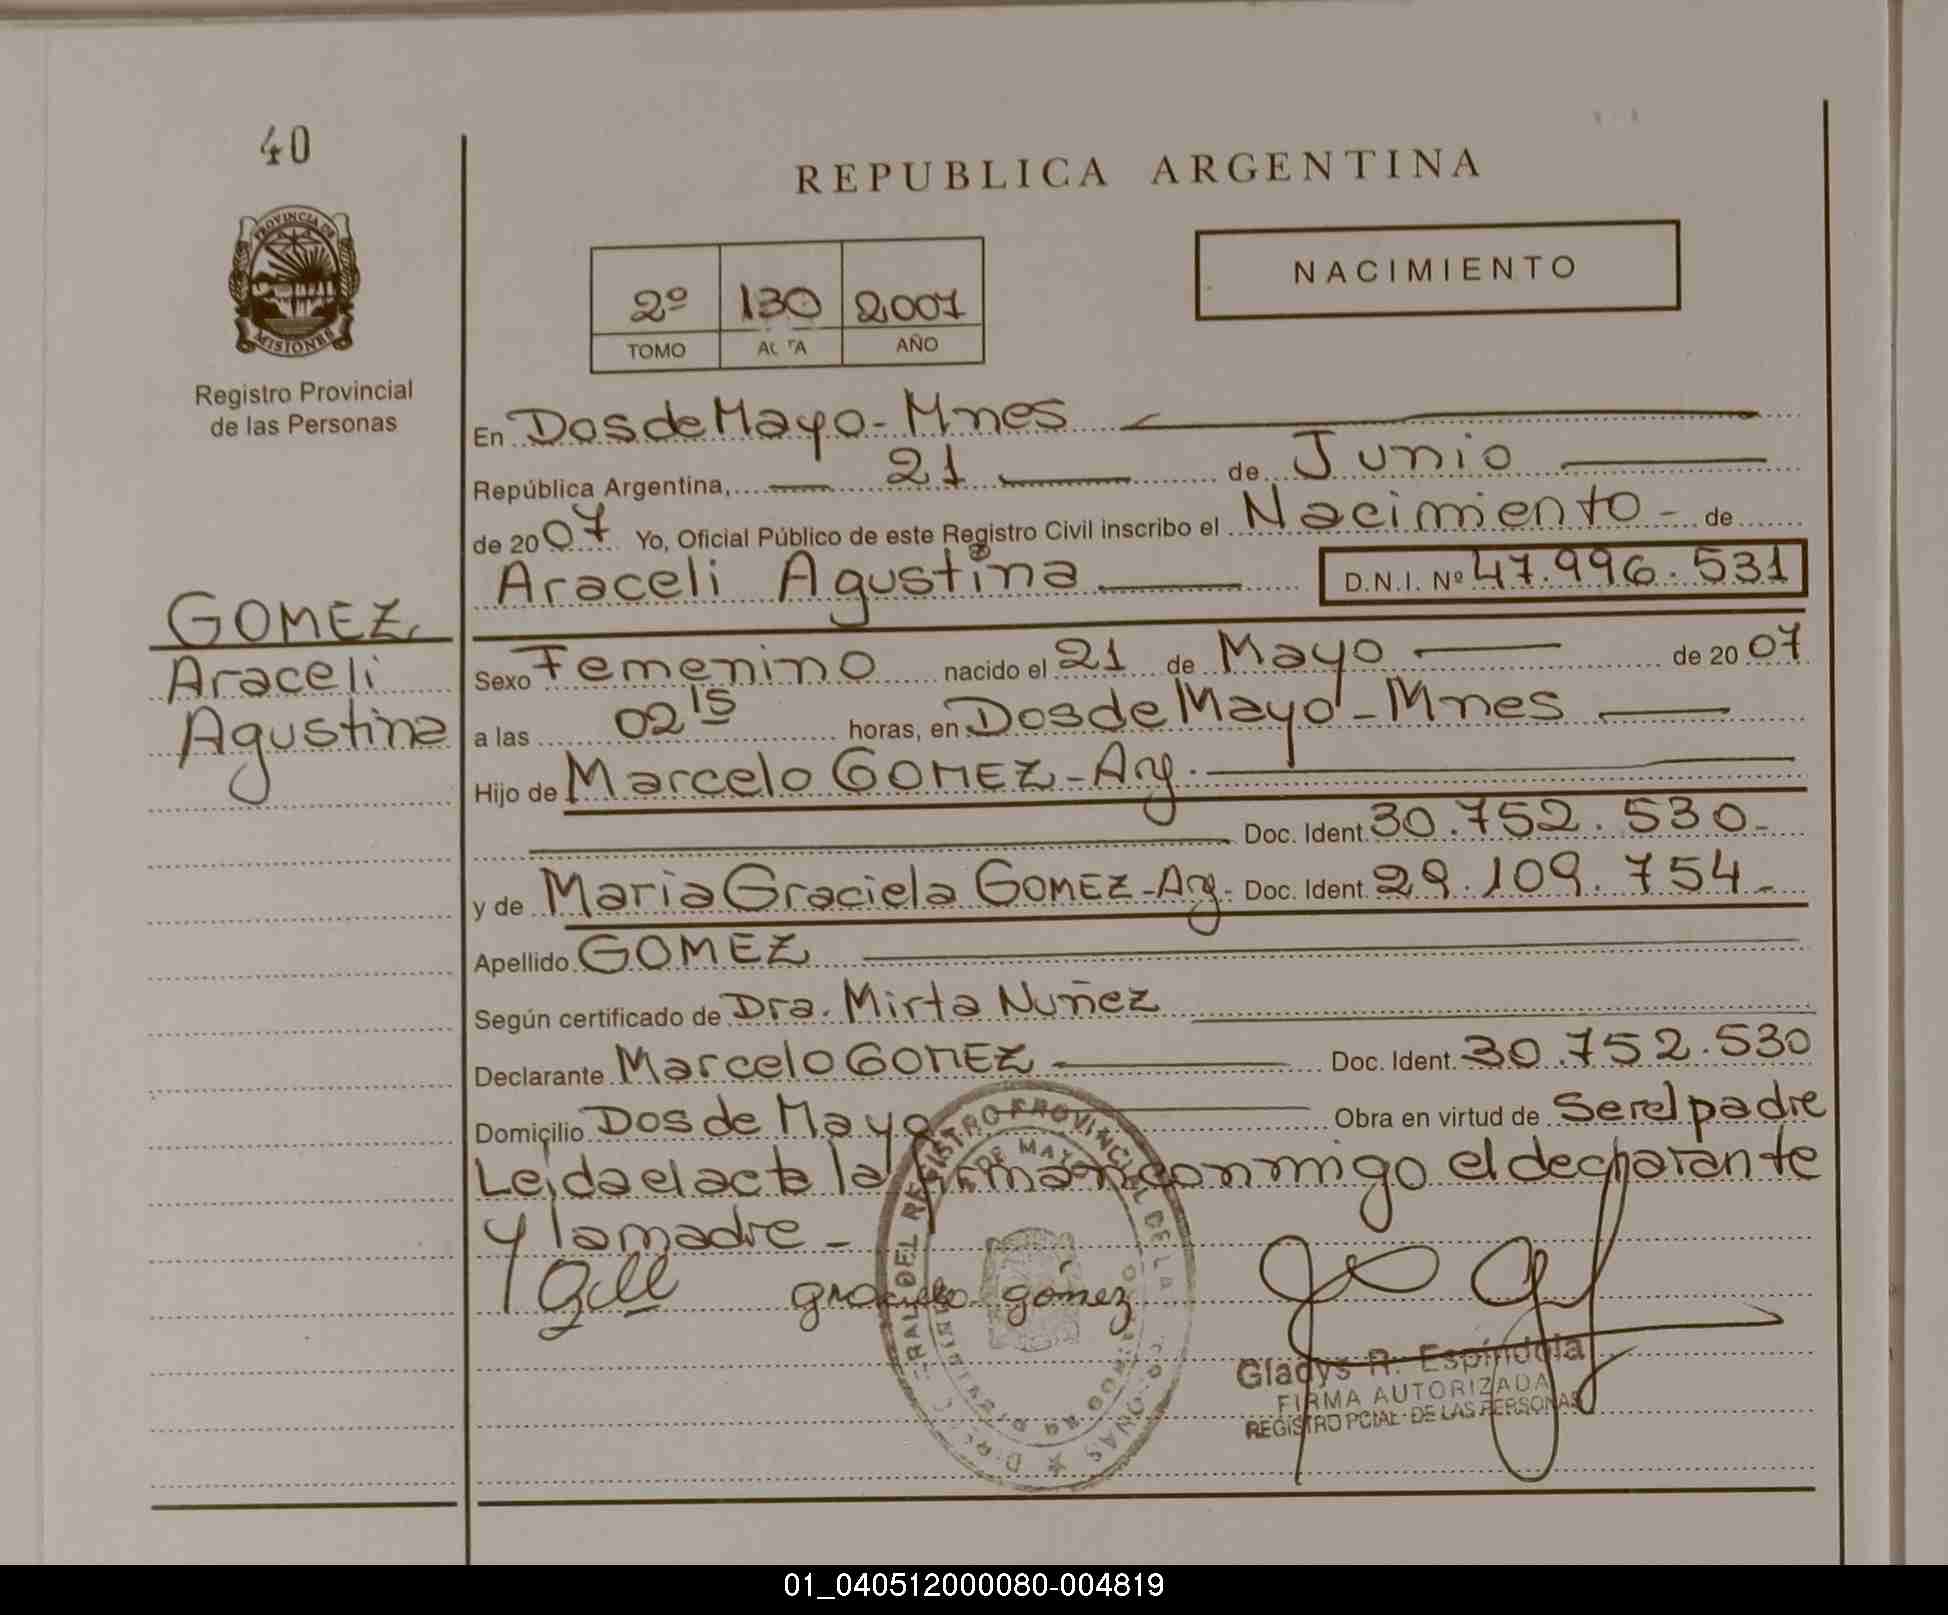 40
PROVINCIA DE
MISIONES
Registro Provincial
de las Personas
GOMEZ
Araceli
Agustina
REPUBLICA ARGENTINA
2º 130 2007
TOMO ACTA AÑO
NACIMIENTO
En Dos de Mayo - Mnes
República Argentina, 21 de Junio
de 2007 Yo, Oficial Público de este Registro Civil inscribo el Nacimiento - de
Araceli Agustina D.N.I. Nº 47.996.531
Sexo Femenino nacido el 21 de Mayo de 2007
a las 02 15 horas, en Dos de Mayo - Mnes
Hijo de Marcelo GOMEZ - Arg.
Doc. Ident. 30.752.530-
y de Maria Graciela GOMEZ - Arg. Doc. Ident. 29.109.754-
Apellido GOMEZ
Según certificado de Dra. Mirta Nuñez
Declarante Marcelo GOMEZ Doc. Ident. 30.752.530
Domicilio Dos de Mayo Obra en virtud de Ser el padre
Leida el acta la firman conmigo el declarante
y la madre -
graciela gómez
Gladys R. Espindola
FIRMA AUTORIZADA
REGISTRO PCIAL. DE LAS PERSONAS
01_040512000080-004819